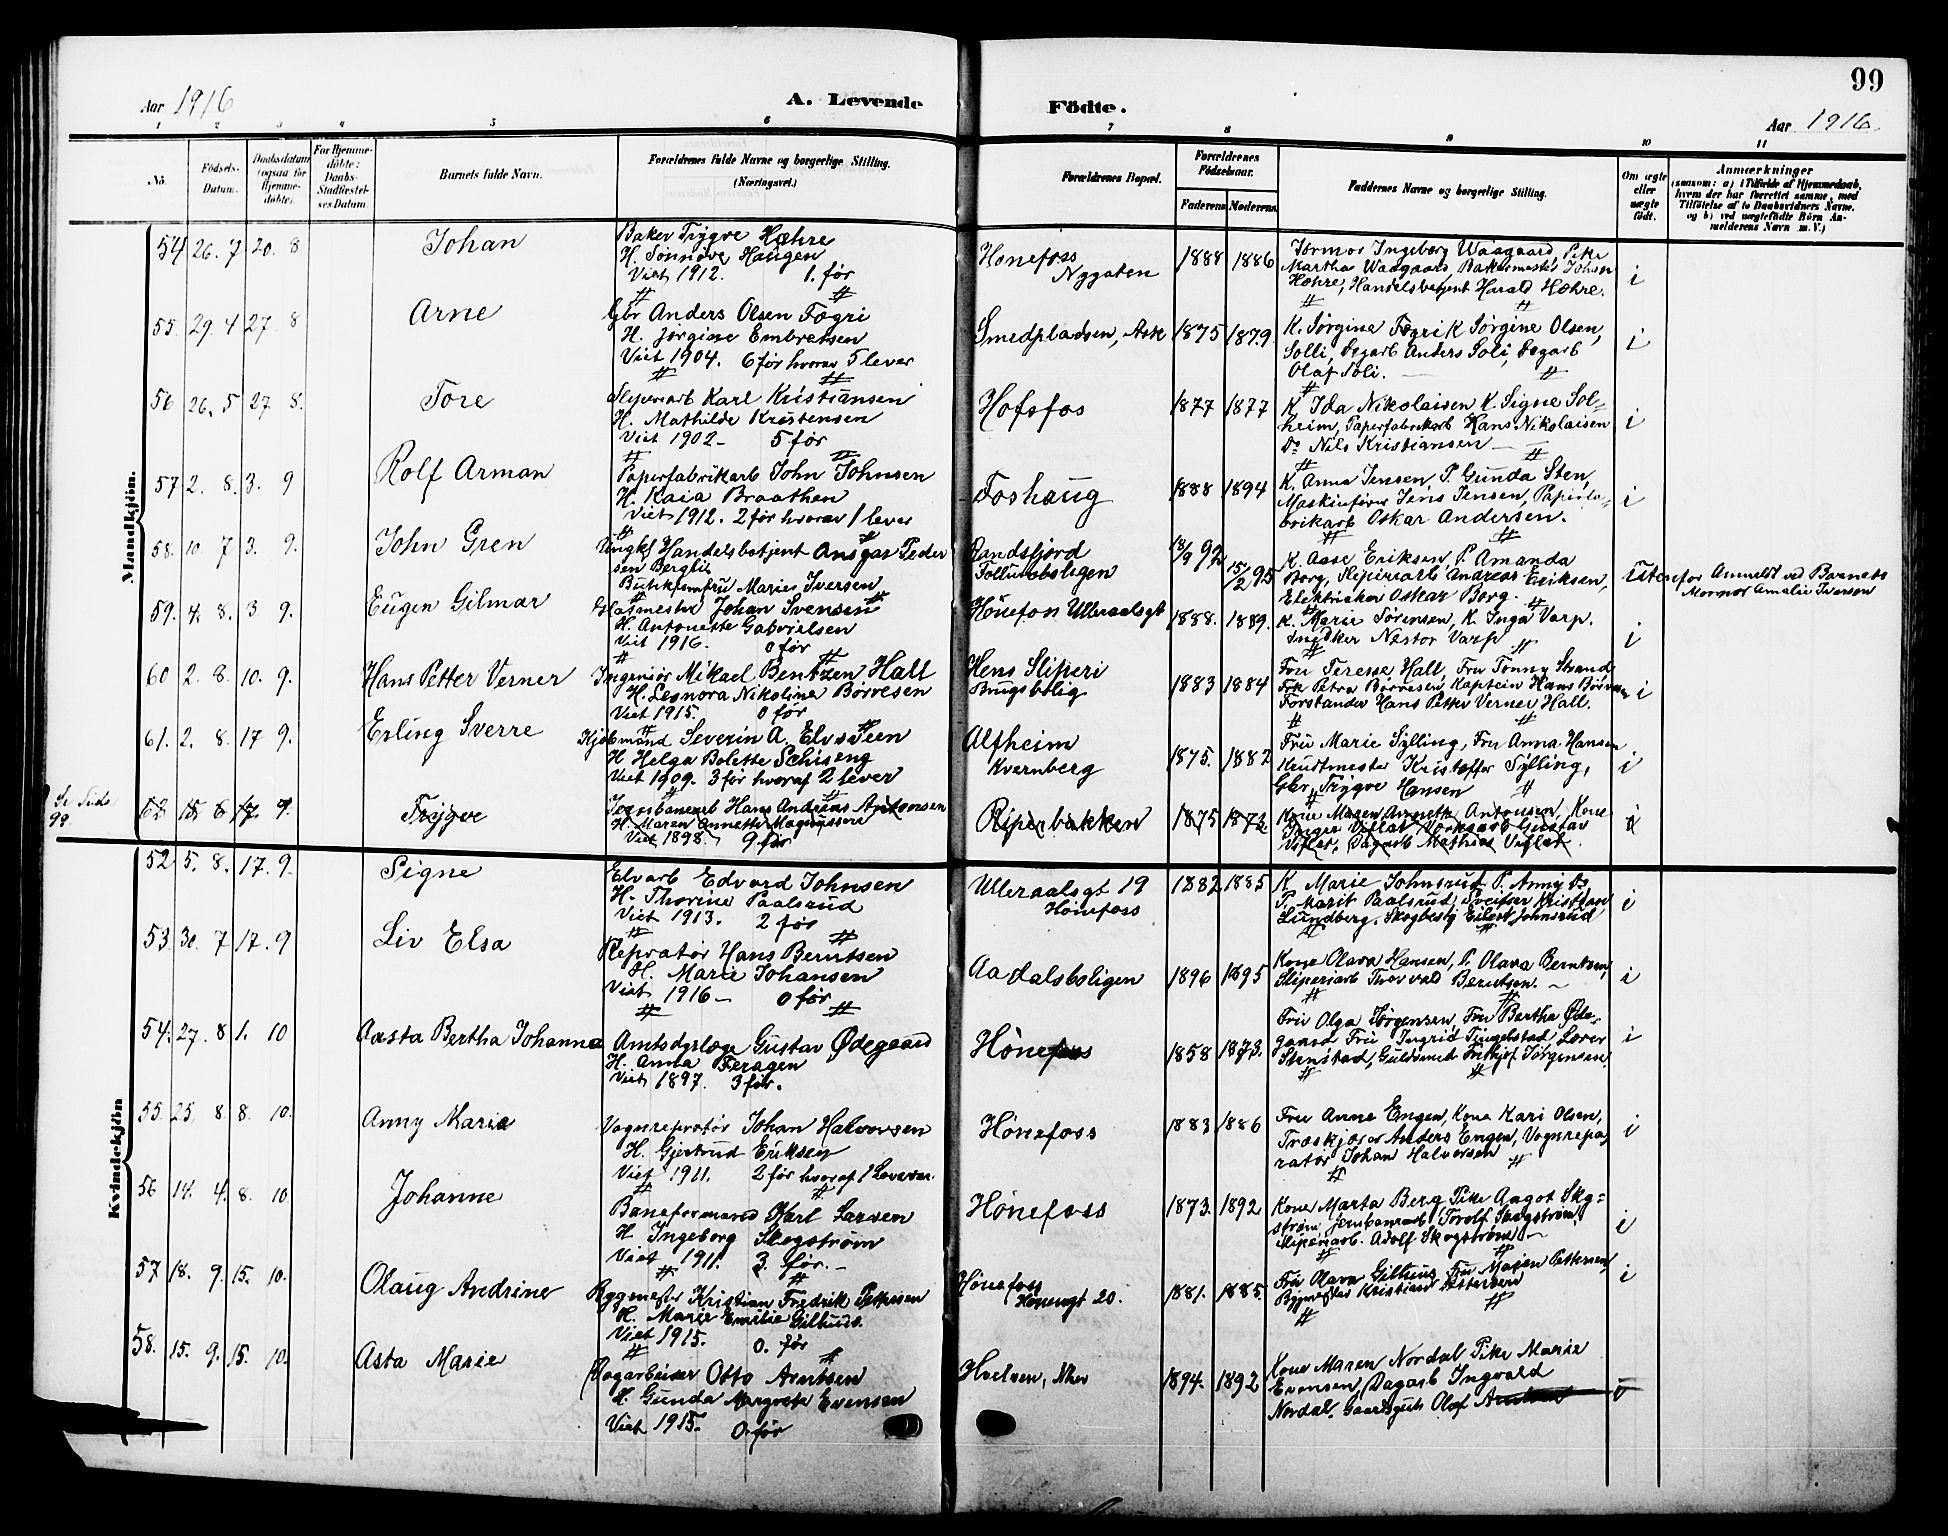 99
Aar 1916
A. Levende Födte.
Aar 1916.
1 2 3 4 5 6 7 8 9 10 11
No.
Födsels-Datum.
Daabsdatum (ogsaa for Hjemme-döbte).
For Hjemme-döbte: Daabs-Stadfæstel-ses Datum.
Barnets fulde Navn.
Forældrenes fulde Navne og borgerlige Stilling.
(Næringsvei.)
Forældrenes Bopæl.
Forældrenes Födselsaar.
Faderens Moderens
Faddernes Navne og borgerlige Stilling.
Om ægte eller uægte födt.
Anmærkninger
(saasom: a) i Tilfælde af Hjemmedaab, hvem der har forrettet samme, med Tilföielse af to Daabsvidners Navne, og b) ved uægtefödte Börn An-melderens Navn m. V.)
Mandkjön.
54 26. 7 20. 8 Johan
Baker Trygve Hæhre
H. Sønnøve Haugen
Viet 1912. 1. før
Hønefoss
Nygaten
1888 1886
Jormor Ingeborg Waagaard, Pike
Martha Waagaard, Bakermester Johan
Hæhre, Handelsbetjent Harald Hæhre.
i
55. 29. 4 27. 8 Arne
Gbr Anders Olsen Fægri
H. Jørgine Embretsen
Viet 1904. 6 før hvorav 5 lever
Smedpladsen, Ask 1875 1879
K. Jørgine Fægri K Jørgine Olsen,
Solli, Dagarb Anders Soli, Dagarb
Olaf Soli.
i
56 26. 5 27 8. Tore
Sliperiarb Karl Kristiansen
H. Mathilde Kristensen
Viet 1902 - 5 før
Hofsfos 1877 1877
K. Ida Nikolaisen K. Signe Sol=
heim, Papirfabrikarb Hans Nikolaisen
Do Nils Kristiansen
i
57 2. 8. 3. 9 Rolf Arman
Papirfabrikarb John Johnsen
H. Kaia Braathen
Viet 1912. 2 før hvorav 1 lever
Foshaug 1888 1894
K. Anna Jensen, P. Gunda Sten,
Maskinfører Jens Jensen, Papirfa-
brikarb Oskar Andersen.
i
58. 10 7 3. 9. John Gren
Ungkf Handelsbetjent Ansgar Peder
sen Berglie
Butikjomfru Marie Iversen
Randsfjord
Follumboligen
13/9 92 15/2 95
K. Aase Eriksen, P. Amanda
Borg, Sliperiarb Andreas Eriksen,
Elektriker Oskar Borg.
Utenfor Anmeldt ved Barnets
Mormor Amalie Iversen
59. 4. 8. 3 9. Eugen Gilmar
Glasmester Johan Svensen
H. Antonette Gabrielsen
Viet 1916. 0 før
Hønefoss Ulleraalsgt 1888. 1889.
K. Marie Sørensen, K. Inga Varp.
Snedker Nestor Varp
i
60 2. 8. 10. 9. Hans Petter Verner
Ingeniør Mikael Bentzen Hall
H. Leonora Nikoline Børresen
Viet 1915. 0 før
Hens Sliperi
Brugsbolig
1883 1884
Fru Terese Hall, Fru Tonny Strand
Frk Petra Børresen, Kaptein Hans Børresen
Forstander Hans Petter Verner Hall.
i
61. 2. 8. 17 9. Erling Sverre
Kjøbmand Severin A. Elvestuen
H Helga Bolette Schiseng
Viet 1909. 3 før hvoraf 2 lever
Alfheim
Kvernberg
1875. 1882
Fru Marie Sylling, Fru Anna Hansen
Krudtmester Kristoffer Sylling,
Gbr. Trygve Hansen
i
Se Side
99.
62 15 6 17. 9. Trygve
Jernbanearb Hans Andreas Antonsen
H. Maren Annette Magnussen
Viet 1898. 9 før
Riperbakken 1875 1873
Kone Maren Annette Antonsen, Kone
Gustav
Dagarb Mathias
i
Kvindekjön
52 5. 8. 17. 9. Signe
Elvarb Edvard Johnsen
H. Thorine Paalsrud
Viet 1913. 2 før
Ulleraalsgt 19
Hønefoss
1882 1885
K Marie Johnsrud P. Anny Do
P. Marit Paalsrud, Sveitser Kristian
Lundberg, Skogbestj Eilert Johnsrud
i
53. 30. 7 17. 9 Liv Elsa
Repratør Hans Berntsen
H. Marie Johansen
Viet 1916 - 0 før
Aadalsboligen 1896 1895
Kone Olava Hansen, P. Olava Berntsen,
Sliperiarb Thorvald Berntsen.
i
54. 27. 8 1. 10 Aasta Bertha Johanne
Amtsdyrlæge Gustav Ødegaard
H. Anna Feragen
Viet 1897. 3 før.
Hønefoss 1858 1873.
Fru Olga Jørgensen, Fru Bertha Øde-
gaard Fru Ingrid Tingelstad Lærer
Stenstad, Guldsmed Fritjof Jørgensen.
i
55. 25. 8. 8. 10. Anny Marie
Vognreprатør Johan Halvorsen
H. Gjertrud Eriksen
Viet 1911. 2 før hvoraf 1 Levende.
Hønefoss 1883 1886
Fru Anne Engen, Kone Kari Olsen,
Træskjærer Anders Engen, Vognrepa
ratør Johan Halvorsen
i
56 14. 4. 8. 10 Johanne
Baneformand Karl Larsen
H Ingeborg Skogstrøm
Viet 1911. 3. før. -
Hønefoss 1873. 1892
Kone Marta Berg Pike Aagot Skg=
strøm Jernbanearb Torolf Skogstrøm,
Sliperiarb. Adolf Skogstrøm
i
57 18. 9. 15. 10. Olaug Andrine
Bygmester Kristian Fredrik Pettersen
H. Marie Emilie Gilhuus.
Viet 1915. 0. før
Hønefoss
Hønengt 20.
1881. 1885.
Fru Olava Gilhuus, Fru Majen Pettersen,
Bygmester Kristian Pettersen
i
58. 15. 9. 15. 10. Asta Marie
Dagarbeider Otto Arntsen
H Gunda Margrete Evensen
Viet 1915. 0. før
1894. 1892
Kone Maren Nordal Pike Marie
Evensen, Dagarb Ingvald
Nordal, Gaardsgut Olaf Arntsen